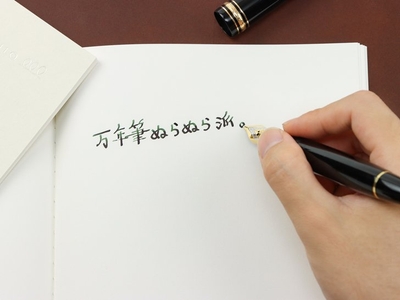 万年筆ぬらぬら派。